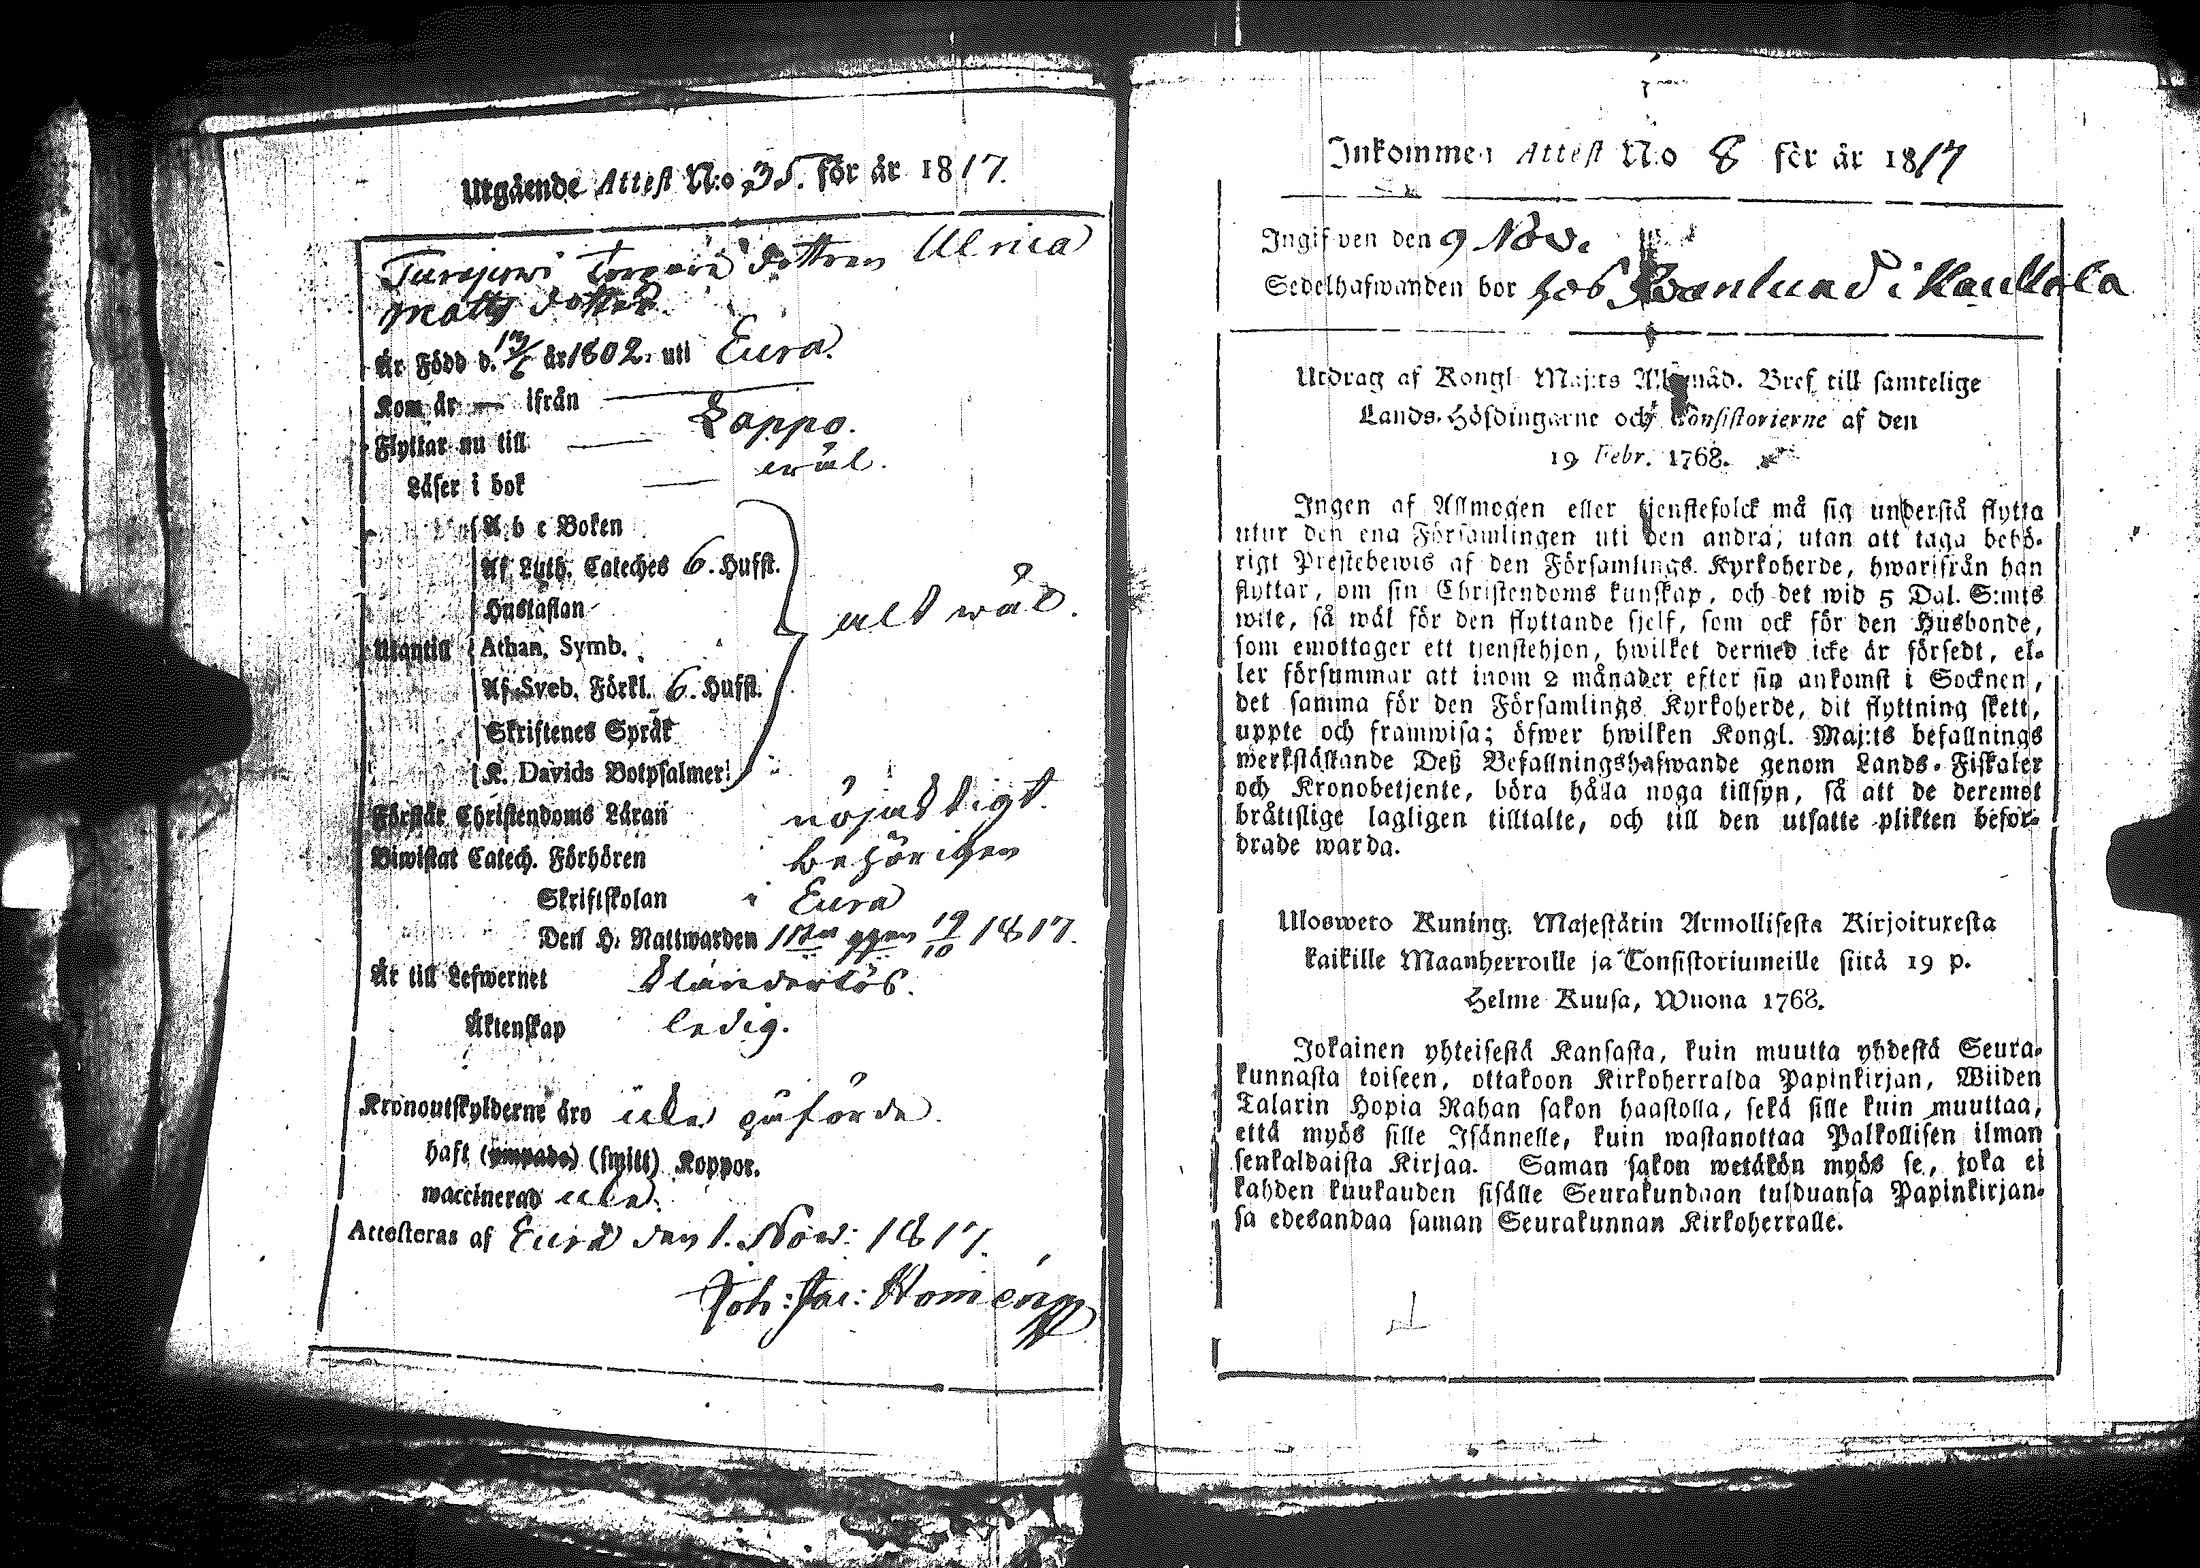 Utgående Attest N:o 35. för år 1817.
dottren Ulrica
Matts dotter
Är Född d. år 1802. uti Eura.
Kom år — ifrån —
Flyttar nu till — Lappo.
Läser i bok — wäl.
A b c Boken
Af Luth. Cateches 6. Hufst.
Hustaflan
Utantill Athan. Symb.
alt wäl.
Af Sveb. Förkl. 6. Hufst.
Skriftenes Språk
K. Davids Botpsalmer
Förstår Christendoms Läran nöjaktigt.
Biwistat Catech. Förhören behörigen
Skriftskolan i Eura
Den H. Nattwarden 1sta ggen 19/10 1817.
Är till Lefwernet klanderlös.
Äktenskap ledig.
Kronoutskylderne äro icke påförde.
haft (ympade) (smitt) Koppor.
waccinerad icke.
Attesteras af Eura den 1. Nov: 1817.
Joh: Jac:
Inkommen Attest N:o 8 för år 1817
Ingifven den 9 Nov.
Sedelhafwanden bor hos i Kauttola
Utdrag af Kongl Maj:ts Allmnåd. Bref till samtelige
Lands-Höfdingarne och Consistorierne af den
19 Febr. 1768.
Ingen af Allmogen eller tjenstefolck må sig understå flytta
utur den ena Församlingen uti den andra, utan att taga behö-
rigt Prestebewis af den Församlings Kyrkoherde, hwarifrån han
flyttar, om sin Christendoms kunskap, och det wid 5 Dal. S:mts
wite, så wäl för den flyttande sjelf, som ock för den Husbonde,
som emottager ett tjenstehjon, hwilket dermed icke är försedt, el-
ler försummar att inom 2 månader efter sin ankomst i Socknen,
det samma för den Församlings Kyrkoherde, dit flyttning skett,
uppte och framwisa; öfwer hwilken Kongl. Maj:ts befallnings
werkställande Deß Befallningshafwande genom Lands-Fiskaler
och Kronobetjente, böra hålla noga tillsyn, så att de deremot
bråttslige lagligen tilltalte, och till den utsatte plikten befor-
drade warda.
Ulosweto Kuning. Majestätin Armollisesta Kirjoituxesta
kaikille Maanherroille ja Consistoriumeille siitä 19 p.
Helme Kuusa, Wuona 1768.
Jokainen yhteisestä Kansasta, kuin muutta yhdestä Seura-
kunnasta toiseen, ottakoon Kirkoherralda Papinkirjan, Wiiden
Talarin Hopia Rahan sakon haastolla, sekä sille kuin muuttaa,
että myös sille Isännelle, kuin wastanottaa Palkollisen ilman
senkaldaista Kirjaa. Saman sakon wetäkön myös se, joka ei
kahden kuukauden sisälle Seurakundaan tulduansa Papinkirjan-
sa edesandaa saman Seurakunnan Kirkoherralle.